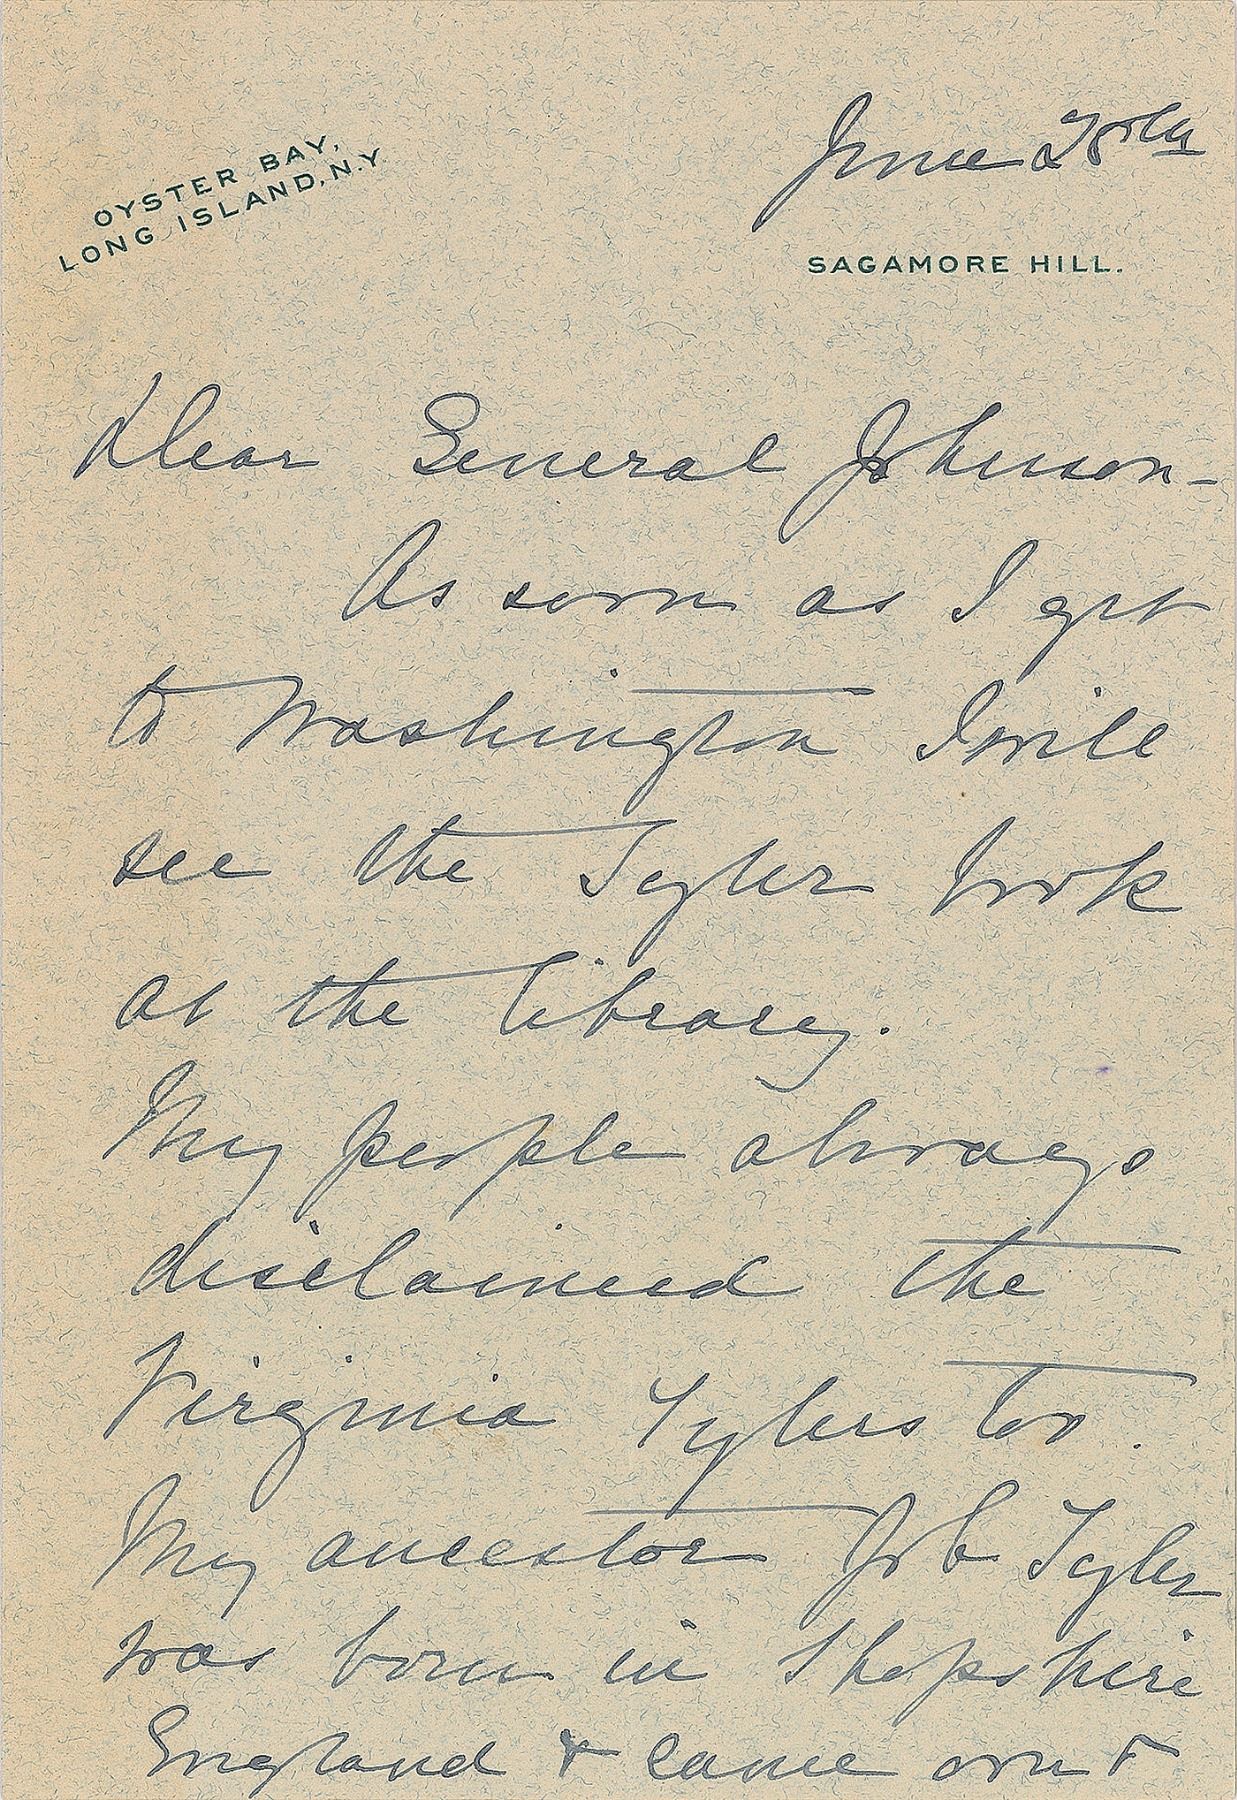 OYSTER BAY,
LONG ISLAND, N.Y.
June 28th
SAGAMORE HILL.
Dear General Johnson -
As soon as I get
to Washington I will
see the Tyler book
at the library.
My people always
disclaimed the
Virginia Tylers too.
My ancestor Job Tyler
was born in Shopshire
England & came out